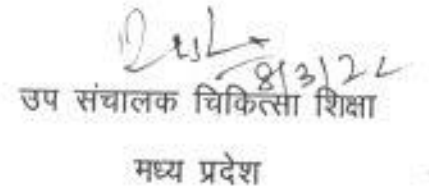 8/3/22
उप संचालक चिकित्सा शिक्षा
मध्य प्रदेश